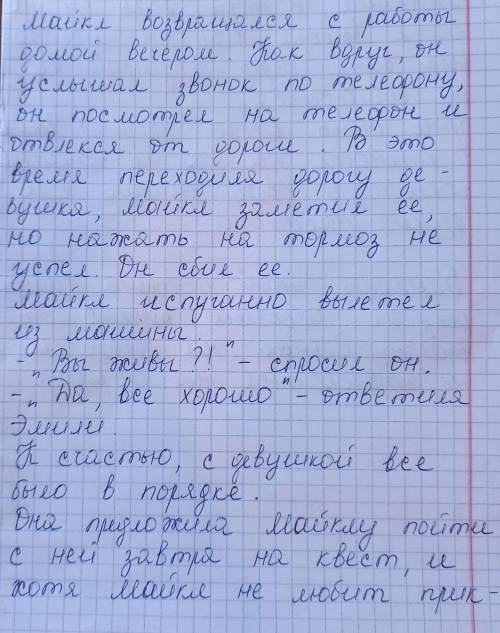 Майкл возвращался с работы
домой вечером. Как вдруг, он
услышал звонок по телефону,
он посмотрел на телефон и
отвлекся от дороги. В это
время переходила дорогу де-
вушка, Майкл заметил ее,
но нажать на тормоз не
успел. Он сбил ее.
Майкл испуганно вылетел
из машины.
- „Вы живы?!" - спросил он.
- „Да, все хорошо" - ответила
Эмили.
К счастью, с девушкой все
было в порядке.
Она предложила Майклу пойти
с ней завтра на квест, и
хотя Майкл не любит прик-